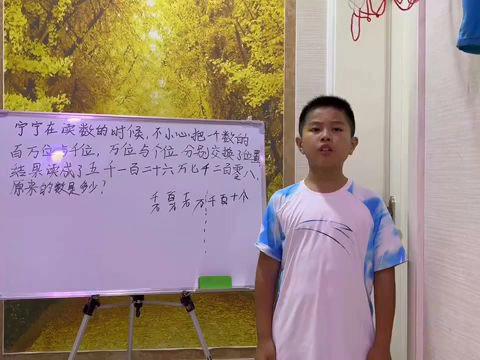 宁宁在读数的时候,不小心把一个数的
百万位与千位,万位与个位分别交换了位置,
结果读成了五千一百二十六万七千二百零八,
原来的数是多少?
千万 百万 十万 万 千 百 十 个